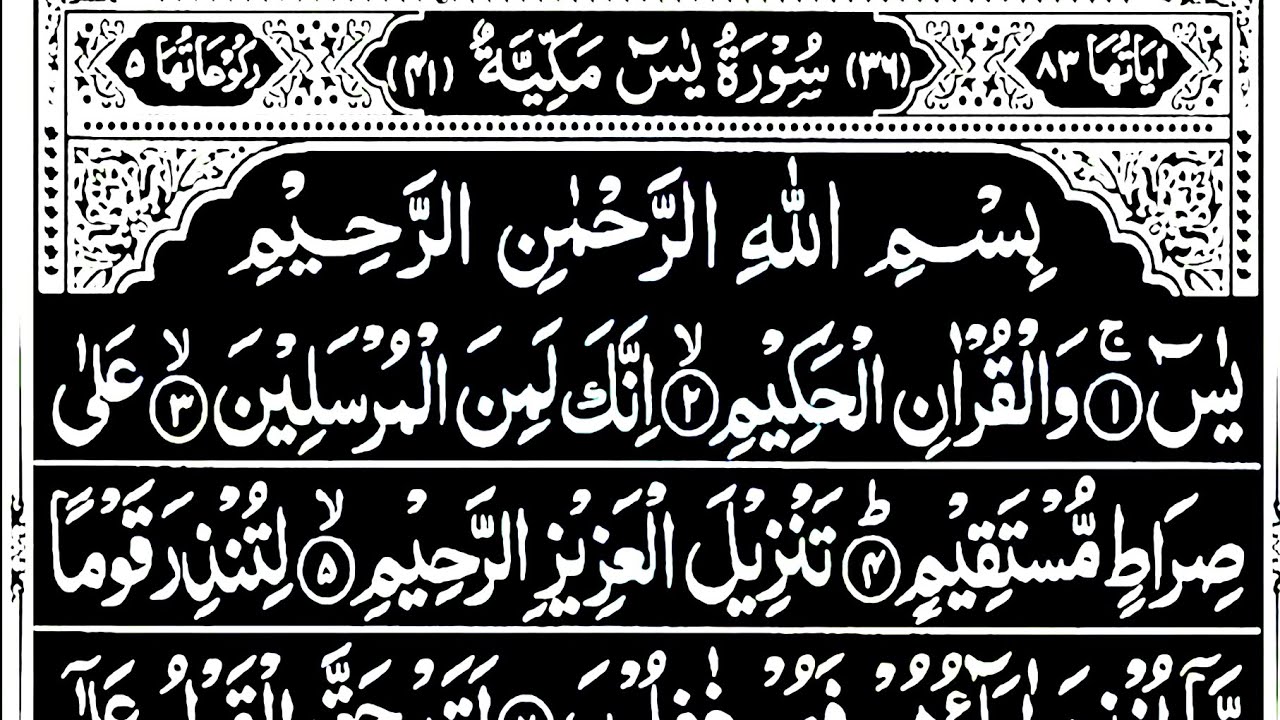 اٰيَاتُهَا ٨٣ (٣٦) سُوْرَةُ يٰسٓ مَكِّيَّةٌ (٤١) رُكُوْعَاتُهَا ٥
بِسْمِ اللّٰهِ الرَّحْمٰنِ الرَّحِيْمِ
يٰسٓ ۚ ﴿١﴾ وَالْقُرْاٰنِ الْحَكِيْمِ ۙ ﴿٢﴾ اِنَّكَ لَمِنَ الْمُرْسَلِيْنَ ۙ ﴿٣﴾ عَلٰى
صِرَاطٍ مُّسْتَقِيْمٍ ؕ ﴿۴﴾ تَنْزِيْلَ الْعَزِيْزِ الرَّحِيْمِ ۙ ﴿۵﴾ لِتُنْذِرَ قَوْمًا